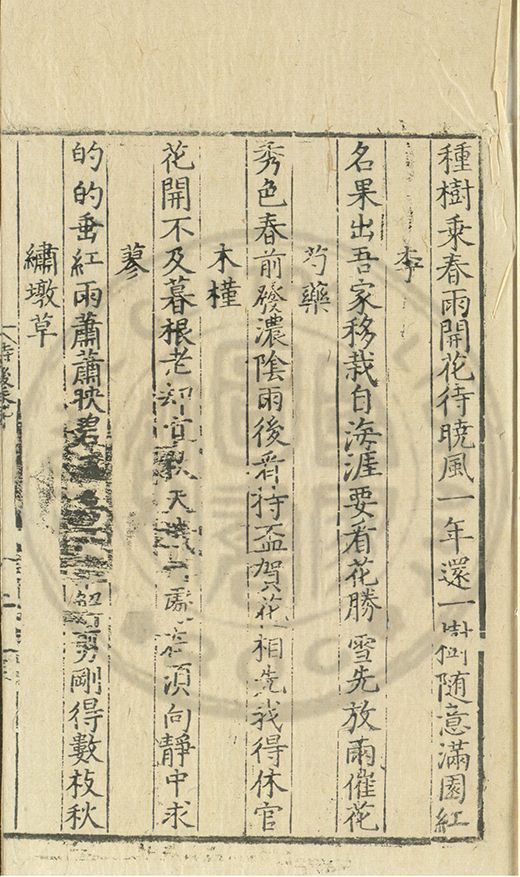 種樹乘春雨開花待曉風一年還一樹隨意滿園紅
李
名果出吾家移栽自海涯要看花勝雪先放雨催花
芍藥
秀色春前發濃陰雨後看持盃賀花相先我得休官
木槿
花開不及暮根老却天須向靜中求
蓼
的的垂紅雨蕭蕭映碧剪剛得數枝秋
繡墩草